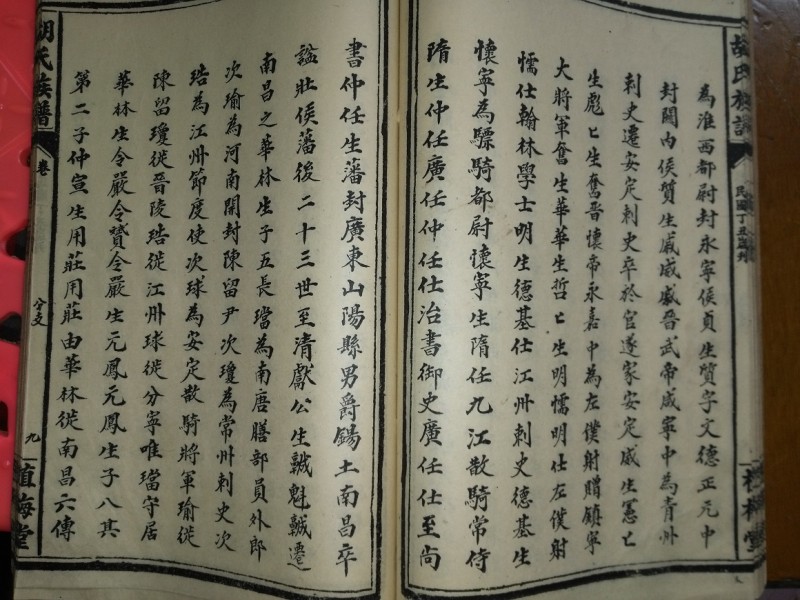 胡氏族譜
民國丁丑歲刊
堂
為淮西都尉封永寧侯貞生質字文德正元中
封關內侯質生威威晉武帝咸寧中為青州
刺史遷安定刺史卒於官遂家安定威生憲匕
生彪匕生奮晉懷帝永嘉中為左僕射贈鎮軍
大將軍奮生華華生哲匕生明懦明仕左僕射
懦仕翰林學士明生德基仕江州刺史德基生
懷寧為驃騎都尉懷寧生隋任九江散騎常侍
隋生仲任廣任仲任仕治書御史廣任仕至尚
書仲任生藩封廣東山陽縣男爵錫土南昌卒
謚壯侯藩後二十三世至清獻公生諴魁諴遷
南昌之華林生子五長璫為南唐膳部員外郎
次瑜為河南開封陳留尹次瓊為常州刺史次
琣為江州節度使次球為安定散騎將軍瑜徙
陳留瓊徙晉陵琣徙江州球徙分寧唯璫守居
華林生令嚴令贊令嚴生元鳳元鳳生子八其
第二子仲宣生用莊用莊由華林徙南昌六傳
胡氏族譜
卷
分支
九
植梅堂